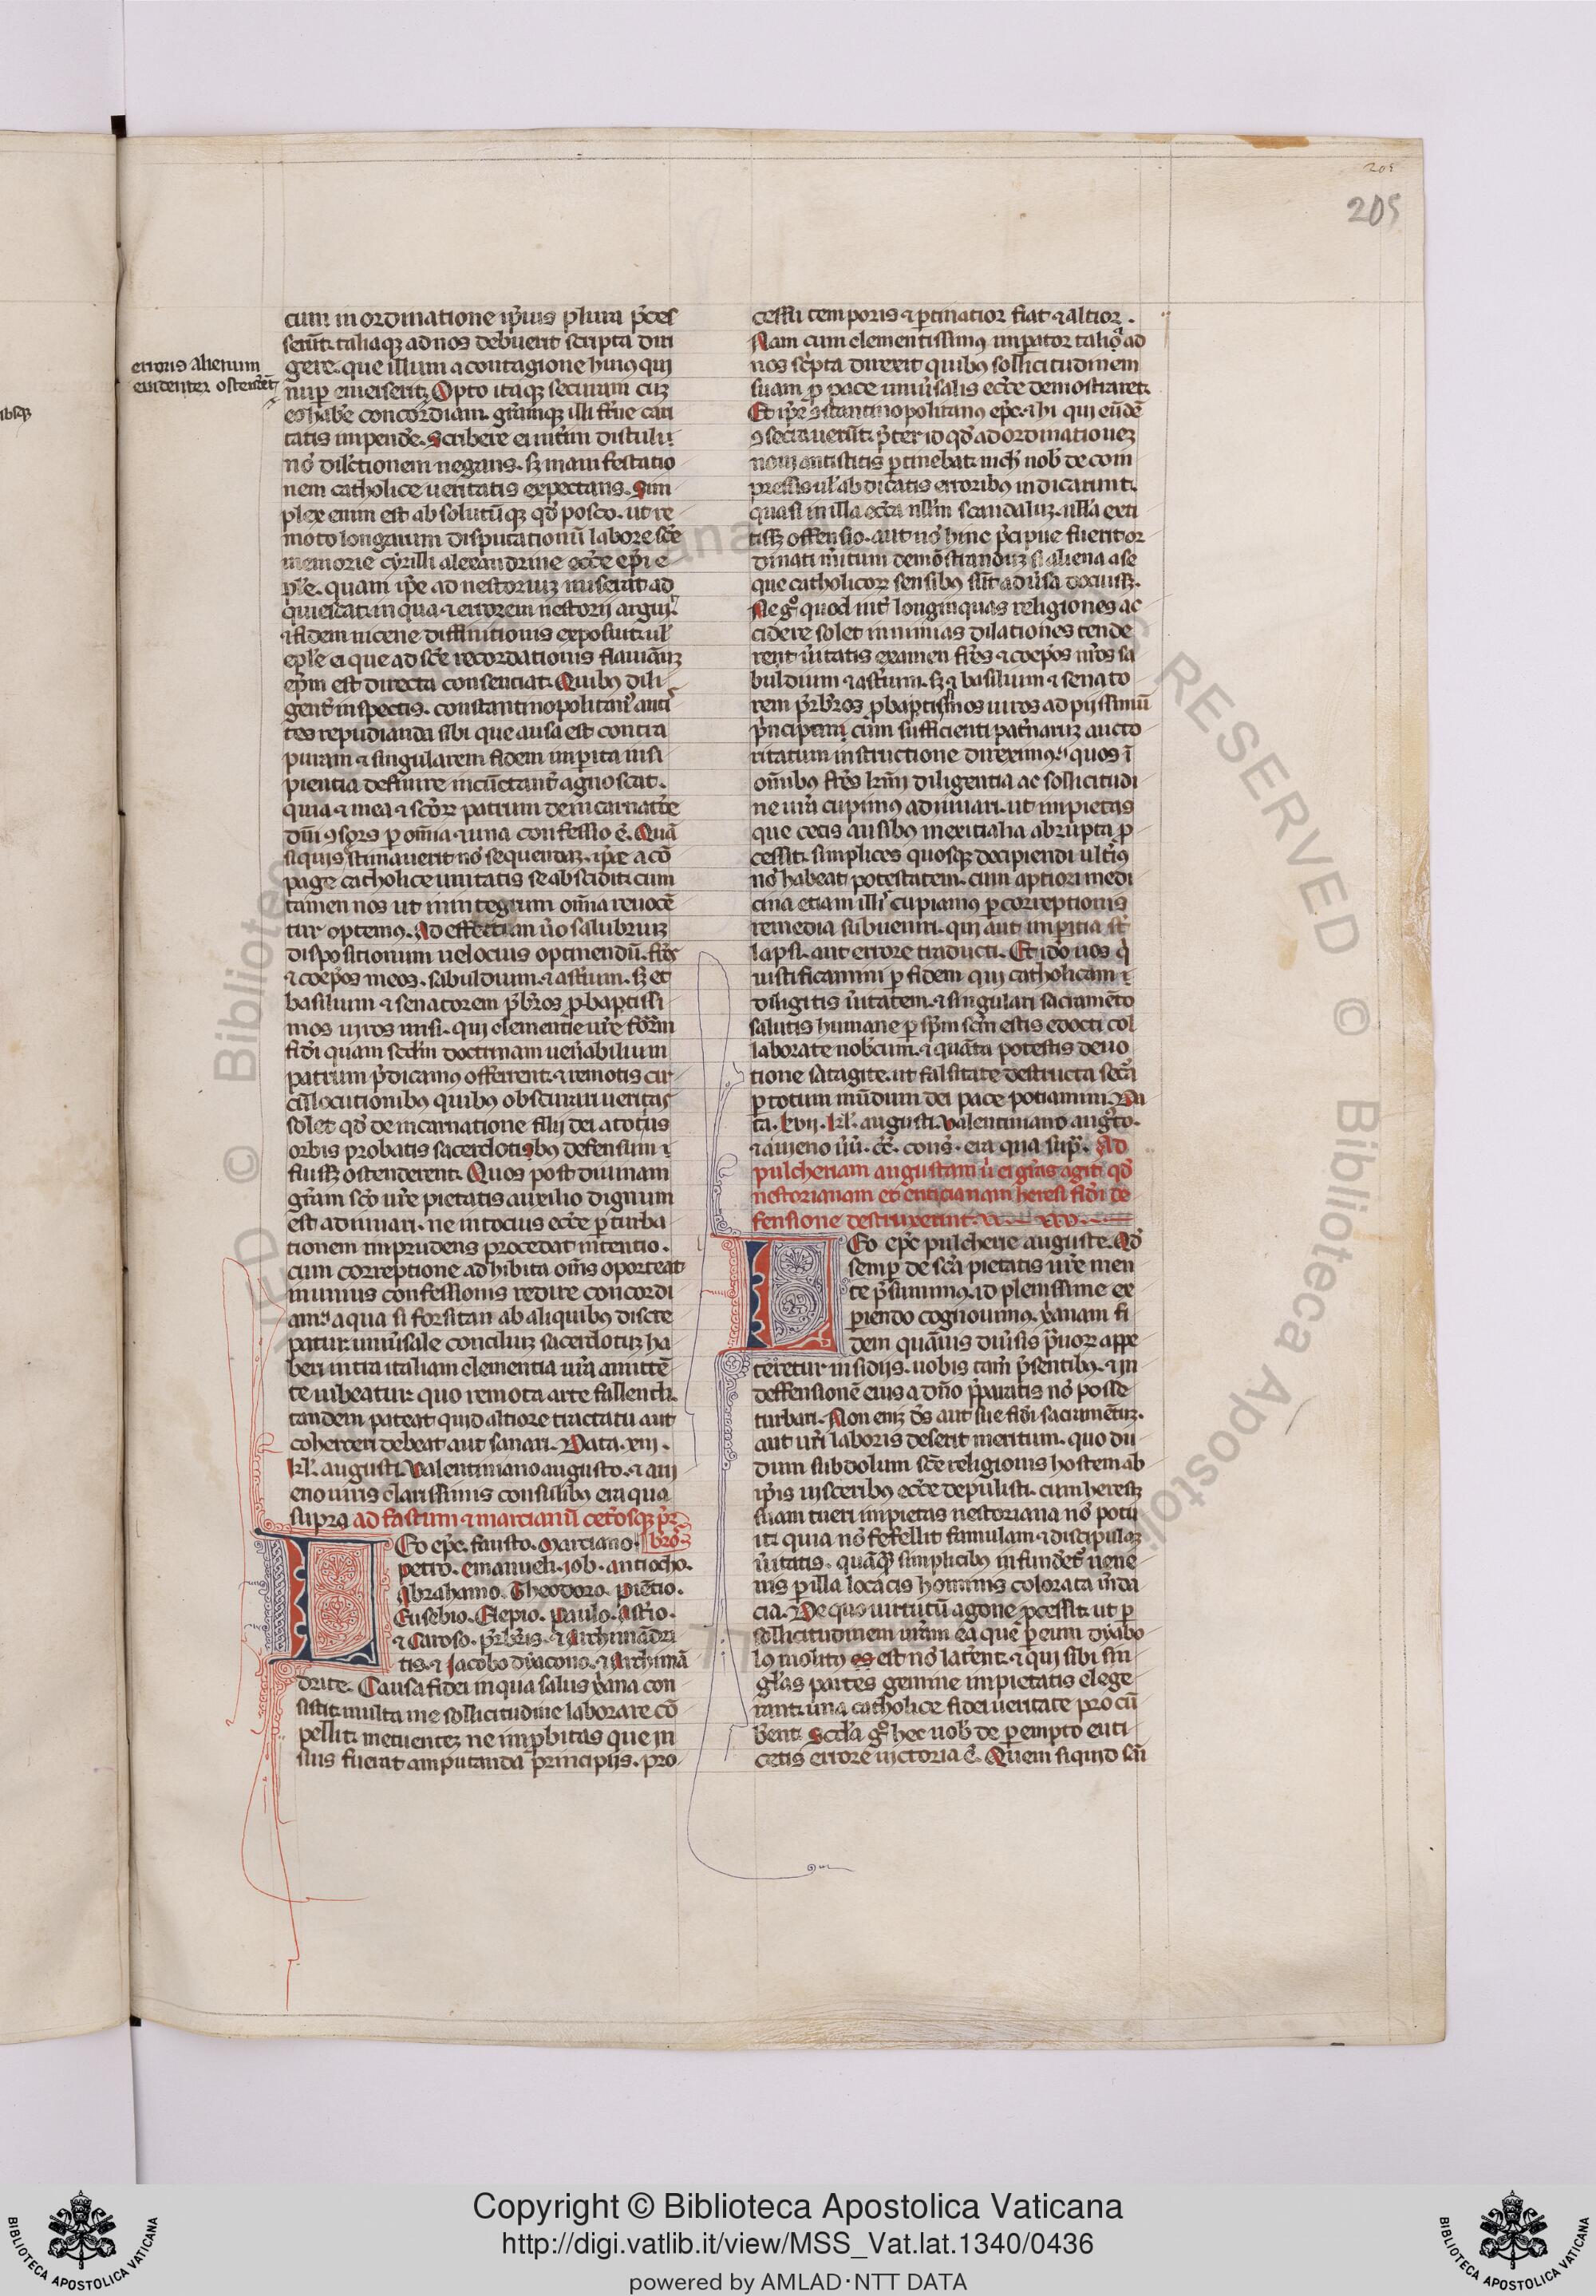 205
205
erroris alienum
euidenter ostenderet
cum in ordinatione ip̄ius plura p̄ces
serūt. taliaq; ad nos debuerit scripta diri
gere. que illum a contagione huius qui
nup̄ emerserit. Opto itaq; securam cuz
eo hab̄e concordiam. gr̄amq; illi fr̄ne cari
tatis impende. Scribere ei int̄im distuli.
nō dil̄ctionem negans. sz manifestatio
nem catholice ueritatis expectans. Sim
plex enim est absolutūq; qd̄ posco. ut re
moto longarum disputationū labore sc̄e
memorie cyrilli alexandrine ecc̄e ep̄i e
pl̄e. quam ip̄e ad nestoriuz miserat ad
quiescat. in qua et errorem nestorij argui.
et fidem nicene diffinitionis exposuit. ul̄
epl̄e ei que ad sc̄e recordationis flauianuz
ep̄m est directa consentiat. Quibus dili
gent̄ inspectis. constantinopolitan9 anti
tes repudianda sibi que ausa est contra
puram et singularem fidem imperita insi
pientia definire incūctant̄ agnoscat.
quia et mea et sc̄orz patrum de incarnatōe
dn̄i ꝯsors p̄ om̄ia et una confessio ē. Quā
siquis estimauerit nō sequendaz. ip̄e a cō
page catholice unitatis se abscidit. cum
tamen nos ut in integrum om̄ia reuocē
tur optemus. Ad effectum ū̄o salubriuz
dispositionum uelocius optinendū. fr̄es
et coep̄os meos. sabuldium. et astium. sz et
basilium et senatorem p̄rb̄ros p̄baptissi
mos uiros misi. qui clementie ur̄e form̄
fidei quam sc̄dm doctrinam uen̄abilium
patrum p̄dicamus offerrent. et remotis cir
cūlocutionibus quibus obscurari ueritas
solet qd̄ de incarnatione filij dei a totius
orbis probatis sacerdotibus defensum ī
fuisse ostenderent. Quos post diuinam
gr̄am sc̄o ur̄e pietatis auxilio dignum
est adiuuari. ne in tocius ecc̄e p̄turba
tionem imprudens procedat intentio.
cum correptione adhibita om̄s oporteat
munus confessionis redire concordi
am. a qua si forsitan ab aliquibus discre
patur. uniu̅sale conciliuz sacerdotuz ha
beri intra italiam clementia ur̄a annittē
te iubeatur quo remota arte fallendi.
tandem pateat quid altiore tractatu aut
coherceri debeat aut sanari. Data. xiij.
kl̄. augusti. Valentiniano augusto. et aui
eno uiris clarissimis consulibus era qua
supra ad fastum et marcianū cet̄osq; p̄r
b̄ros
Leo ep̄c. fausto. Marciano.
petro. emanueli. iob. antiocho.
Abrahamo. Theodoro. piētio.
Eusebio. Elepio. Paulo. Ast̄io.
et Caroso. p̄rb̄ris. et Archimādri
tis. et Jacobo dyacono. et Archimā
drite. Causa fidei in qua salus xp̄iana con
sistit. multa me sollicitudine laborare cō
pellit. metuentez ne imp̄bitas que in
suis fuerat amputanda principijs. pro
cessu temporis et p̄tinatior fiat et altior.
Nam cum clementissimus imp̄ator talio ad
nos sc̄pta direxit quibus sollicitudinem
suam p̄ pace uniu̅salis ecc̄e demōstraret.
Et ip̄e ꝯstantinopolitanus ep̄c. et hi qui eūdē
ꝯsecrauerūt. p̄ter id qd̄ ad ordinationez
noui antistitis p̄tinebat. nich̄ nob̄ de com
pressis ul̄ abdicatis erroribus indicarunt.
quasi in illa ecc̄a nullū scandaluz. nulla exti
tisset offensio. aut nō hinc p̄cipue fuerit or
dinati meritum demōstranduz si aliena a se
que catholicorz sensibus sūt adu̅sa docuisset.
Ne g° quod int̄ longinquas religiones ac
cidere solet in nimias dilationes tende
rent ueritatis examen fr̄es et coep̄os nr̄os sa
buldium et ast̄ium. sz et basilium et senato
rem p̄rb̄ros p̄baptissimos uiros ad pijssimū
p̄ncipem cum sufficienti pat̄narum aucto
ritatum instructione direximus. quos ī
om̄ibus fr̄es kr̄mi diligentia ac sollicitudi
ne ur̄a cupimus adiuuari. ut impietas
que cecis ausibus in exitialia abrupta p̄
cessit. simplices quosq; decipiendi ulterius
nō habeat potestatem. cum aptiori medi
cina etiam illis cupiamus p̄ correptionis
remedia subueniri. qui aut imp̄itia sūt
lapsi. aut errore traducti. Et ideo uos q̄
iustificamini p̄ fidem qui catholicam ī
diligitis ueritatem. et singulari sacramēto
salutis humane p̄ sp̄m sc̄m estis edocti col
laborate nobiscum. et quāta potestis deuo
tione satagite. ut falsitate destructa secura
p̄ totum mūdum dei pace potiamini. Da
ta. xvij. kl̄. augusti. Valentiniano augusto.
et auieno u̅.u̅. cc̄. cons̄. era qua sup̄. Ad
pulcheriam augustam ū̄ ei gr̄as agit qd̄
nestorianam et euticianam heresi fidei de
fensione destruxerint. xxv.
Leo ep̄c pulcherie auguste. Qd̄
semp̄ de sc̄a pietatis ur̄e men
te p̄sumimus. id plenissime ex
periendo cognouimus. xp̄ianam fi
dem quāuis diu̅sis p̄uorz appe
teretur insidijs. uobis tam̄ p̄sentibus. et in
deffensionē eius a dn̄o p̄paratis nō posse
turbari. Non enī d̄s aut sue fidei sacramētuz.
aut ur̄i laboris deserit meritum. quo du
dum subdolum sc̄e religionis hostem ab
ip̄is uisceribus ecc̄e depulisti. cum heresz
suam tueri impietas nestoriana nō potu
it. quia nō fefellit famulam et discipulaz
ueritatis. quāq̄ simplicibus infunderet uene
nis p̄ illa locacis hominis colorata mēda
cia. De quo uirtutū agone p̄cessit. ut p̄
sollicitudinem ur̄am ea que p̄ eum dyabo
lus molitus es est nō laterent. et qui sibi sin
gl̄as partes gemine impietatis elege
rant una catholice fidei ueritate procū
b̄ent. Sc̄da g° hec uob̄ de p̄empto euti
cetis errore uictoria ē. Quem siquid sani
Copyright © Biblioteca Apostolica Vaticana
http://digi.vatlib.it/view/MSS_Vat.lat.1340/0436
powered by AMLAD·NTT DATA